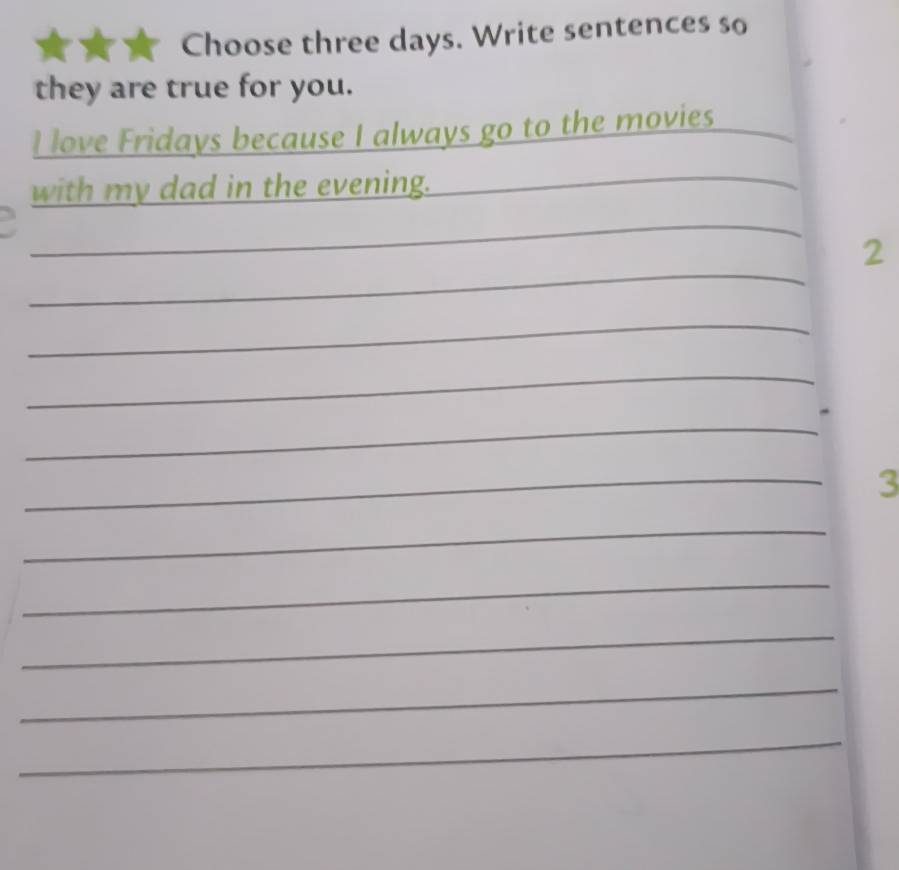 Choose three days. Write sentences so
they are true for you.
I love Fridays because I always go to the movies
with my dad in the evening.
2
3